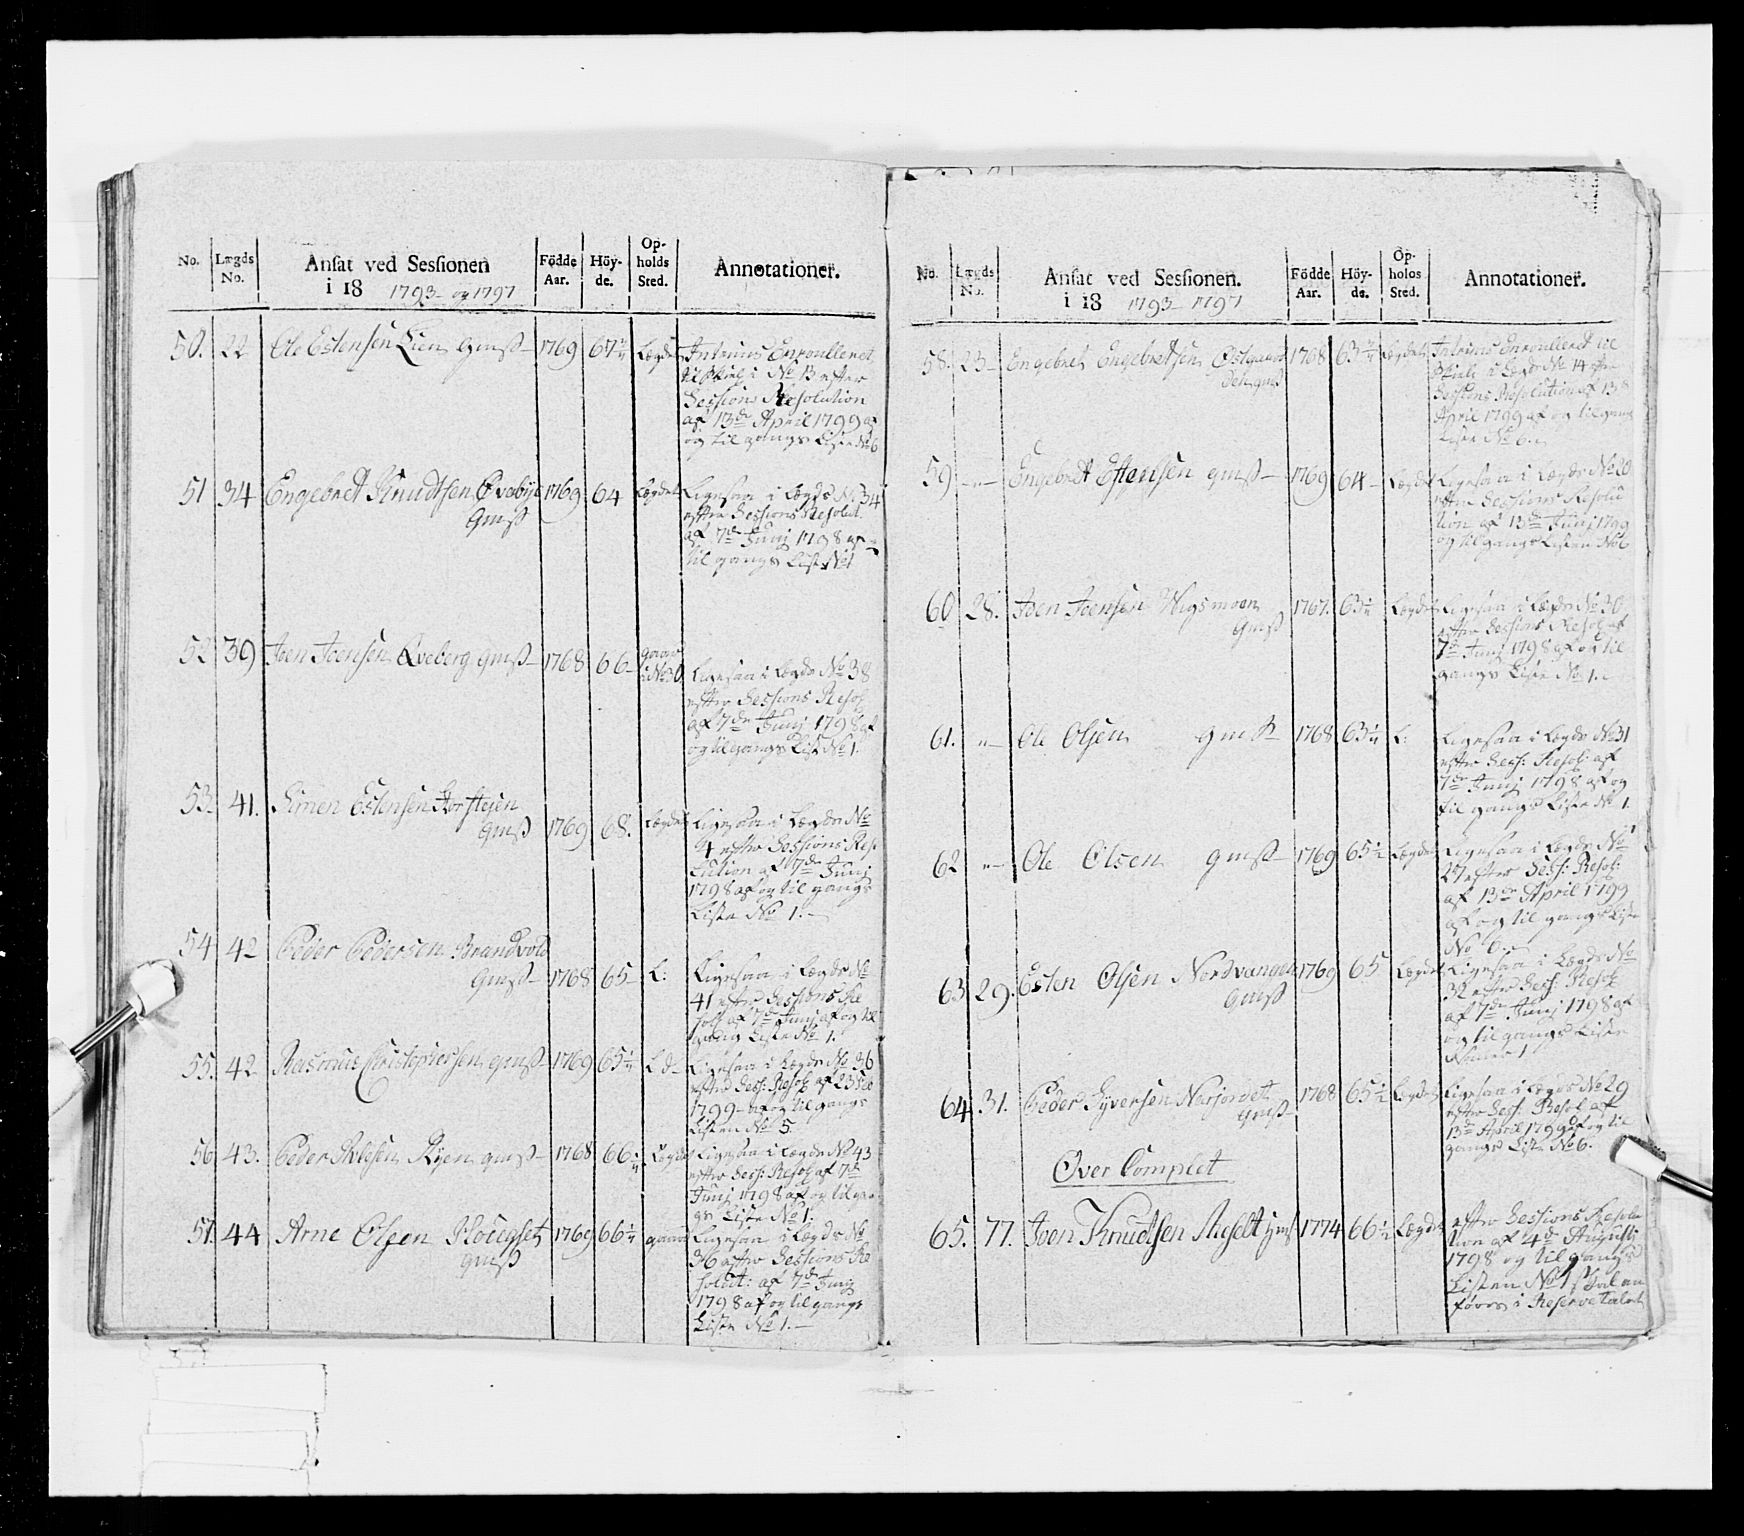 No. Lægds No. Ansat ved Sessionen i 18 1793 - og 1797 Födde Aar. Höy-de. Op-holds Sted. Annotationer.
50. 22 Ole Estensen Lien Gmß 1769 67 Lægdet Interims Enroulleret
til i No 13 efter
Sessions Resolution
af 13de April 1799 af
og til gangs Liste No 6
51 34 Engebret Knudtsen 1769 64 Lægdet Ligesaa i Lægds No 34
Gmß efter Sessions Resolut.
af 7de Junj 1798 af
til gangs Liste No 1
52 39 Joen Joensen Qveberg Gmß 1768 66 No 30 Ligesaa i Lægds No 38
efter Sessions Resol
af 7de Junj 1798 af
og til gangs List No 1.
53. 41. Simen Estensen
Gmß 1769 68. Lægdet Ligesaa i Lægds No
4 efter Sessions Reso
lution af 7de Junj
1798 af og til gangs
Liste No 1.
54 42 Peder Pedersen Brandvold
Gmß 1768 65 L: Ligesaa i Lægds No
41 efter Sessions Re
sol af 7de Junj af og til
gang Liste No 1.
55. 42 Rasmus Christophersen gmß 1769 65 L d Ligesaa i Lægds No 36
efter Sess: Resol af 23
1799 af og til gangs
Listen No 5.
56 43. Peder gmß 1768 66 Lægdet Ligesaa i Lægds No 43
efter Sess: Resol af 7de
Junj 1798 af og til gan
gs Liste No 1.
57. 44 Arne Olsen 1769 66 Ligesaa i Lægds No
gmß 36 efter Sessions Re
solut: af 7de Junj
1798 af og til gangs
Liste No 1.
No. Lægds No. Ansat ved Sessionen. i 18 1793 - 1797 Födde Aar. Höy-de. Op-holds Sted. Annotationer.
58. 23 Engebret Engebretsen 1768 63 Lægdets Interims Enroulleret til
gmß i Lægds No 14 efter
Sessions Resolution af 13de
April 1799 af og til gangs
Liste No 6.
59 Engebret Estensen gmß 1769 64 Lægdet Ligesaa i Lægds No 20
efter Sessions Resolu
tion af 13de Junj 1799
og til gangs Listen No 6
60 28. Joen Joensen Gmß 1767. 63 Lægdet Ligesaa i Lægds No 30
efter Sessions Resol af
7de Junj 1798 af og til
gangs Liste No 1.
61. Ole Olsen gmß 1768 63 L: Ligesaa i Lægds No 31
efter Sess: Resol: af
7de Junj 1798 af og
til gangs Liste No 1.
62 Ole Olsen gmß 1769 65 1/2 Lægdet Ligesaa i Lægds No
27 efter Sess: Resol:
af 13de April 1799
af og til gangs Liste
No 6.
63 29. Esten Olsen Nordvangen 1769 65 Lægdet Ligesaa i Lægds No
Gmß 32 efter Sess: Resol
af 7de Junj 1798 af
og til gangs Liste
1
64. 31. Peder Syversen Nerjordet 1768 65 1/2 Lægdets Ligesaa i Lægds No 29
Gmß efter Sess: Resol af
13de April 1799 af og til
gangs Liste No 6.
Over Complet
65. 77. Joen Knudtsen gmß 1774 66 1/2 Lægdet efter Sessions Resolu
tion af 4de Augusti
1798 og til gangs
Listen No 1 skal an
føres i Reservetalet